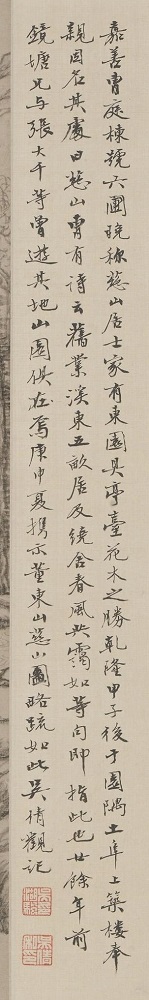 嘉善曹庭棟號六圃晚称慈山居士家有東園具亭臺花木之勝乾隆甲子後于園隅土阜上築楼奉
親因名其處曰慈山曹有诗云舊業溪東五畝居及繞舍春風共靄如等句即指此也廿餘年前
鏡塘兄与張大千等曾遊其地山園俱在焉庚申夏携示董東山慈山圖略疏如此吴倩觀记